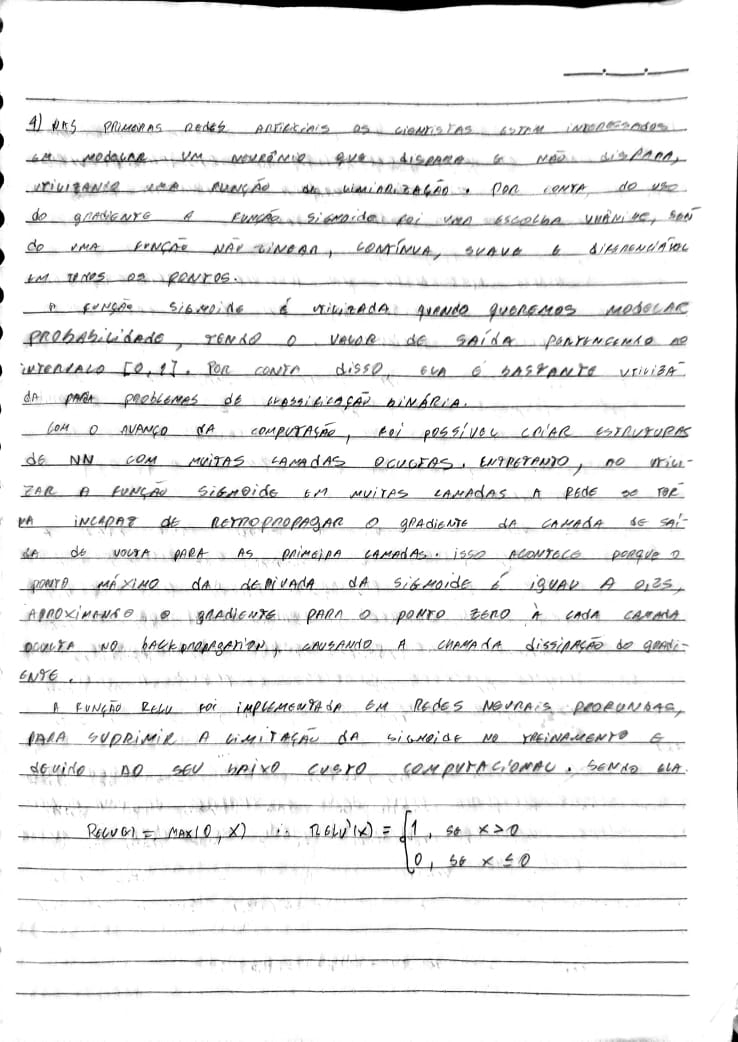 4) NAS PRIMEIRAS REDES ARTIFICIAIS OS CIENTISTAS ESTAM INTERESSADOS
EM MODELAR UM NEURÔNIO QUE DISPARA E NÃO DISPARA,
UTILIZANDO UMA FUNÇÃO DE LIMIARIZAÇÃO. POR CONTA DO USO
DO GRADIENTE A FUNÇÃO SIGMOIDE FOI UMA ESCOLHA UNÂNIME, SEN
DO UMA FUNÇÃO NÃO LINEAR, CONTÍNUA, SUAVE E DIFERENCIÁVEL
EM TODOS OS PONTOS.
A FUNÇÃO SIGMOIDE É UTILIZADA QUANDO QUEREMOS MODELAR
PROBABILIDADE, TENDO O VALOR DE SAÍDA PERTENCENDO AO
INTERVALO [0,1]. POR CONTA DISSO, ELA É BASTANTE UTILIZA
DA PARA PROBLEMAS DE CLASSIFICAÇÃO BINÁRIA.
COM O AVANÇO DA COMPUTAÇÃO, FOI POSSÍVEL CRIAR ESTRUTURAS
DE NN COM MUITAS CAMADAS OCULTAS. ENTRETANTO, AO UTILI-
ZAR A FUNÇÃO SIGMOIDE EM MUITAS CAMADAS A REDE SE TOR
NA INCAPAZ DE RETROPROPAGAR O GRADIENTE DA CAMADA DE SAÍ-
DA DE VOLTA PARA AS PRIMEIRA CAMADAS. ISSO ACONTECE PORQUE O
PONTO MÁXIMO DA DERIVADA DA SIGMOIDE É IGUAL A 0,25,
APROXIMANDO O GRADIENTE PARA O PONTO ZERO À CADA CAMADA
OCULTA NO BACKPROPAGATION, CAUSANDO A CHAMADA DISSIPAÇÃO DO GRADI-
ENTE.
A FUNÇÃO RELU FOI IMPLEMENTADA EM REDES NEURAIS PROFUNDAS,
PARA SUPRIMIR A LIMITAÇÃO DA SIGMOIDE NO TREINAMENTO E
DEVIDO AO SEU BAIXO CUSTO COMPUTACIONAL. SENDO ELA
RELU(X) = MAX(0, X) ∴ RELU'(X) = { 1, SE X > 0
0, SE X ≤ 0